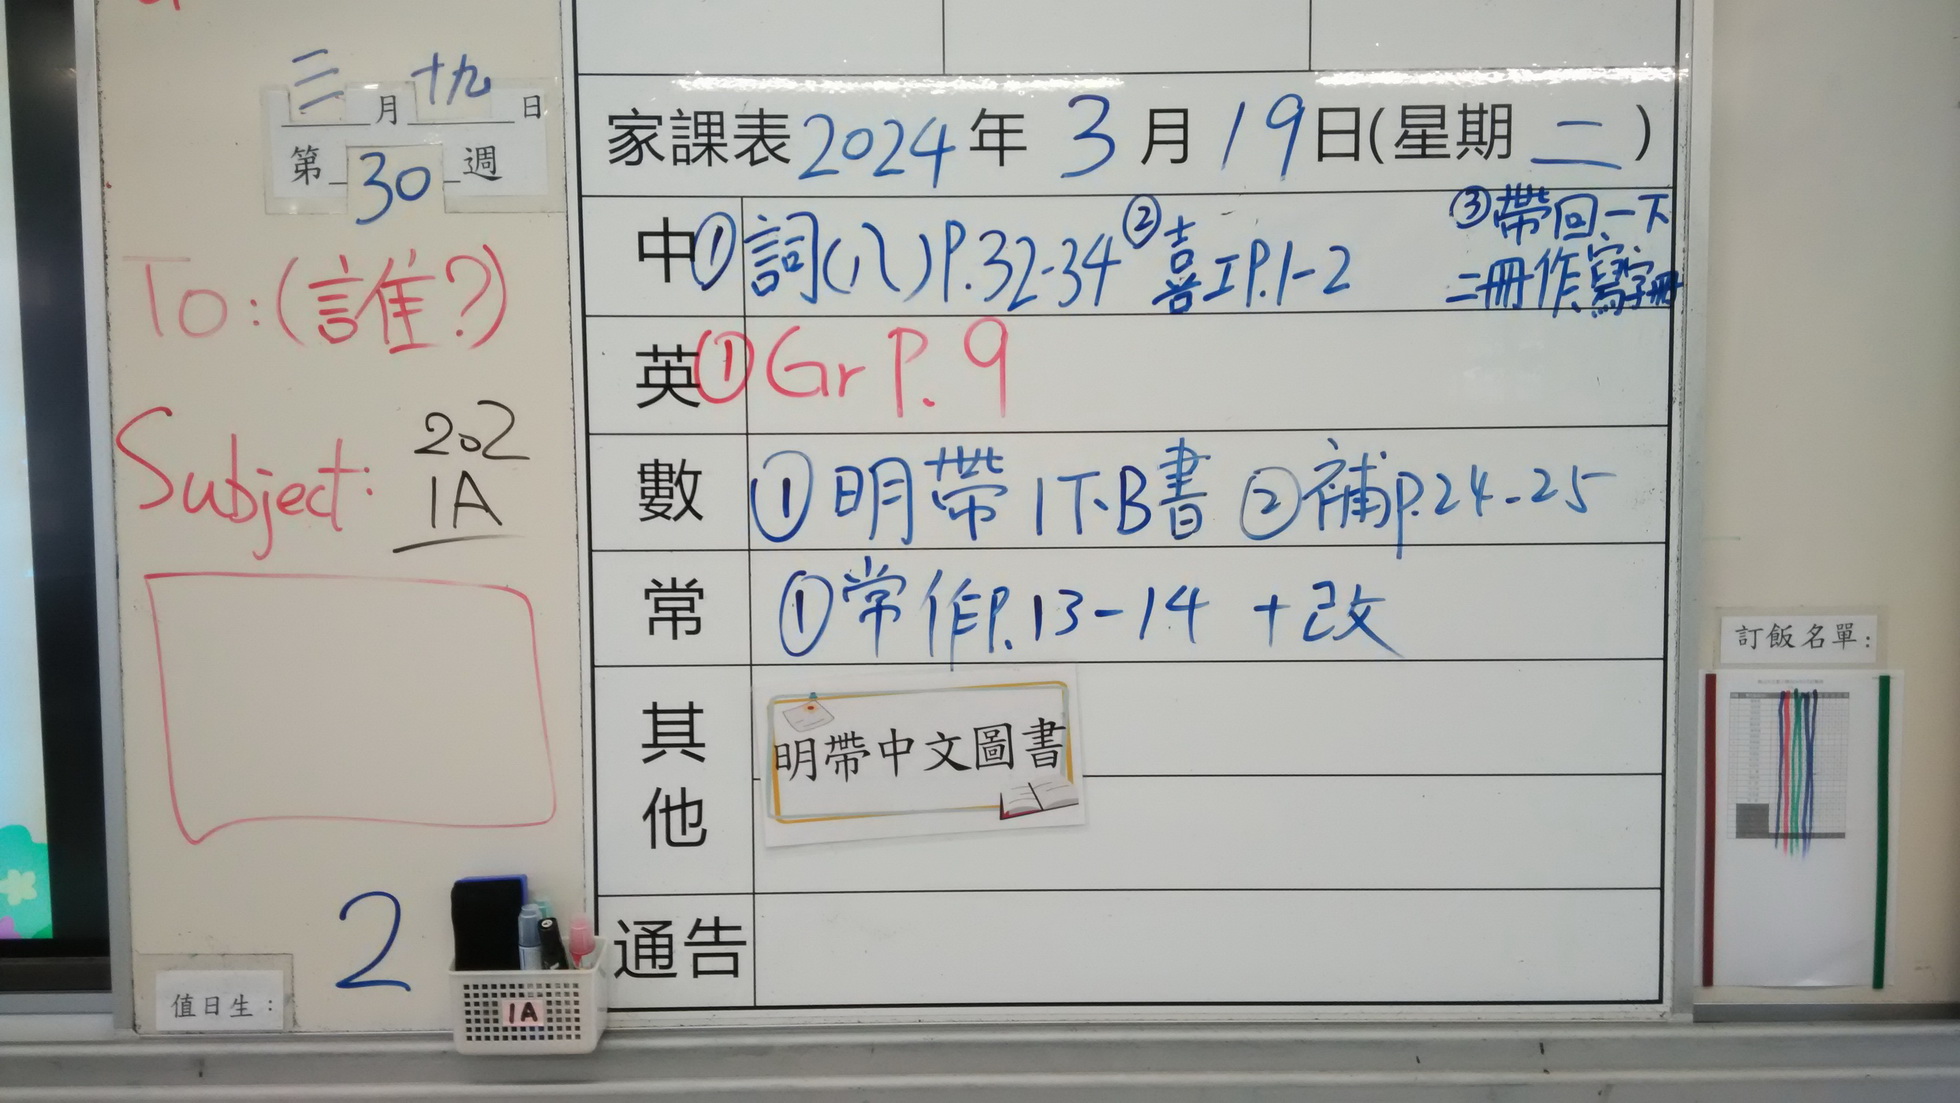 三月十九日
第30週
To:(誰?)
Subject: 202
1A
2
值日生:
1A
家課表2024年3月19日(星期二)
中 ①詞(八)P.32-34 ②喜工P.1-2 ③帶回一下
二冊作,寫字冊
英 ①Gr P.9
數 ①明帶1下B書 ②補P.24-25
常 ①常作P.13-14 +改
其他 明帶中文圖書
通告
訂飯名單: